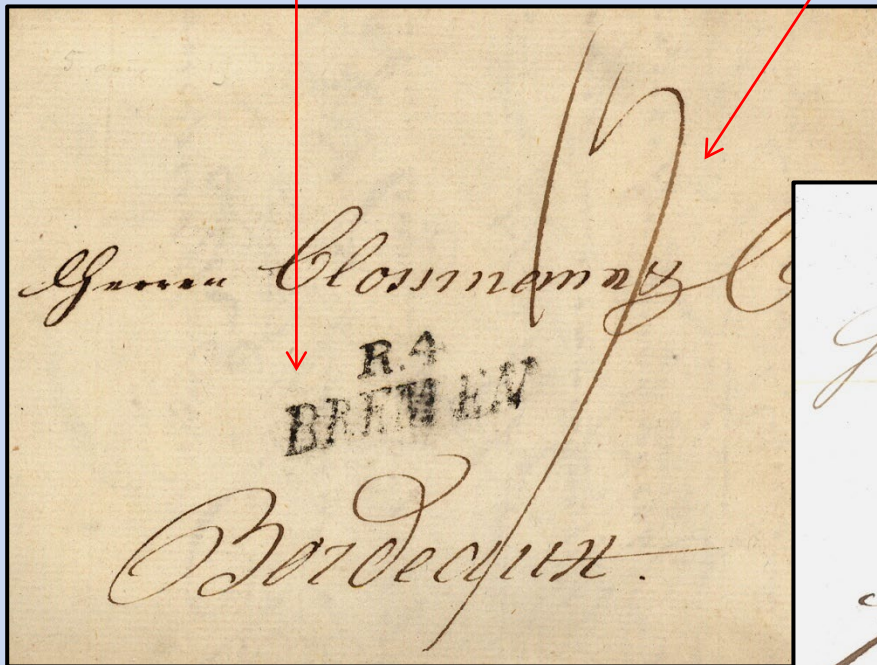 Herren Clossmann &
R.4
BREMEN
Bordeaux.